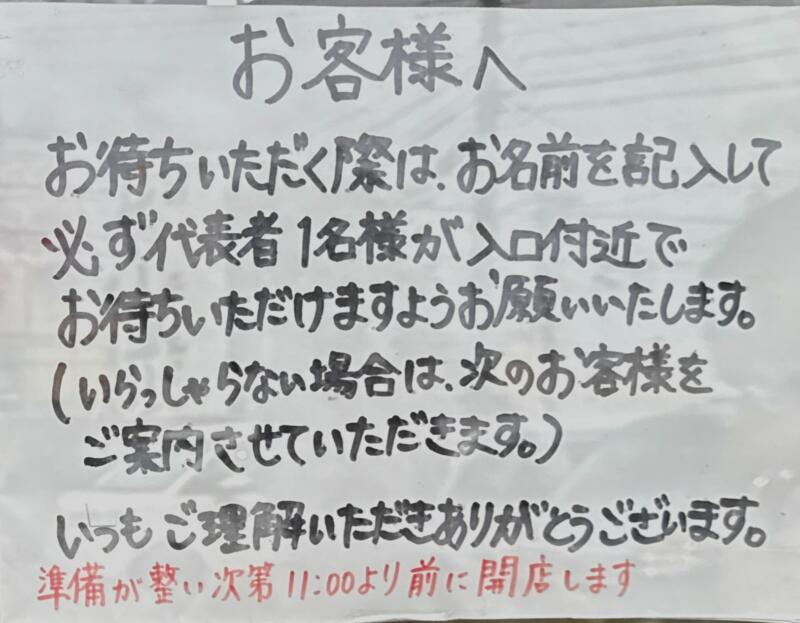 お客様へ
お待ちいただく際は、お名前を記入して
必ず代表者1名様が入口付近で
お待ちいただけますようお願いいたします。
(いらっしゃらない場合は、次のお客様を
ご案内させていただきます。)
いつもご理解いただきありがとうございます。
準備が整い次第11:00より前に開店します